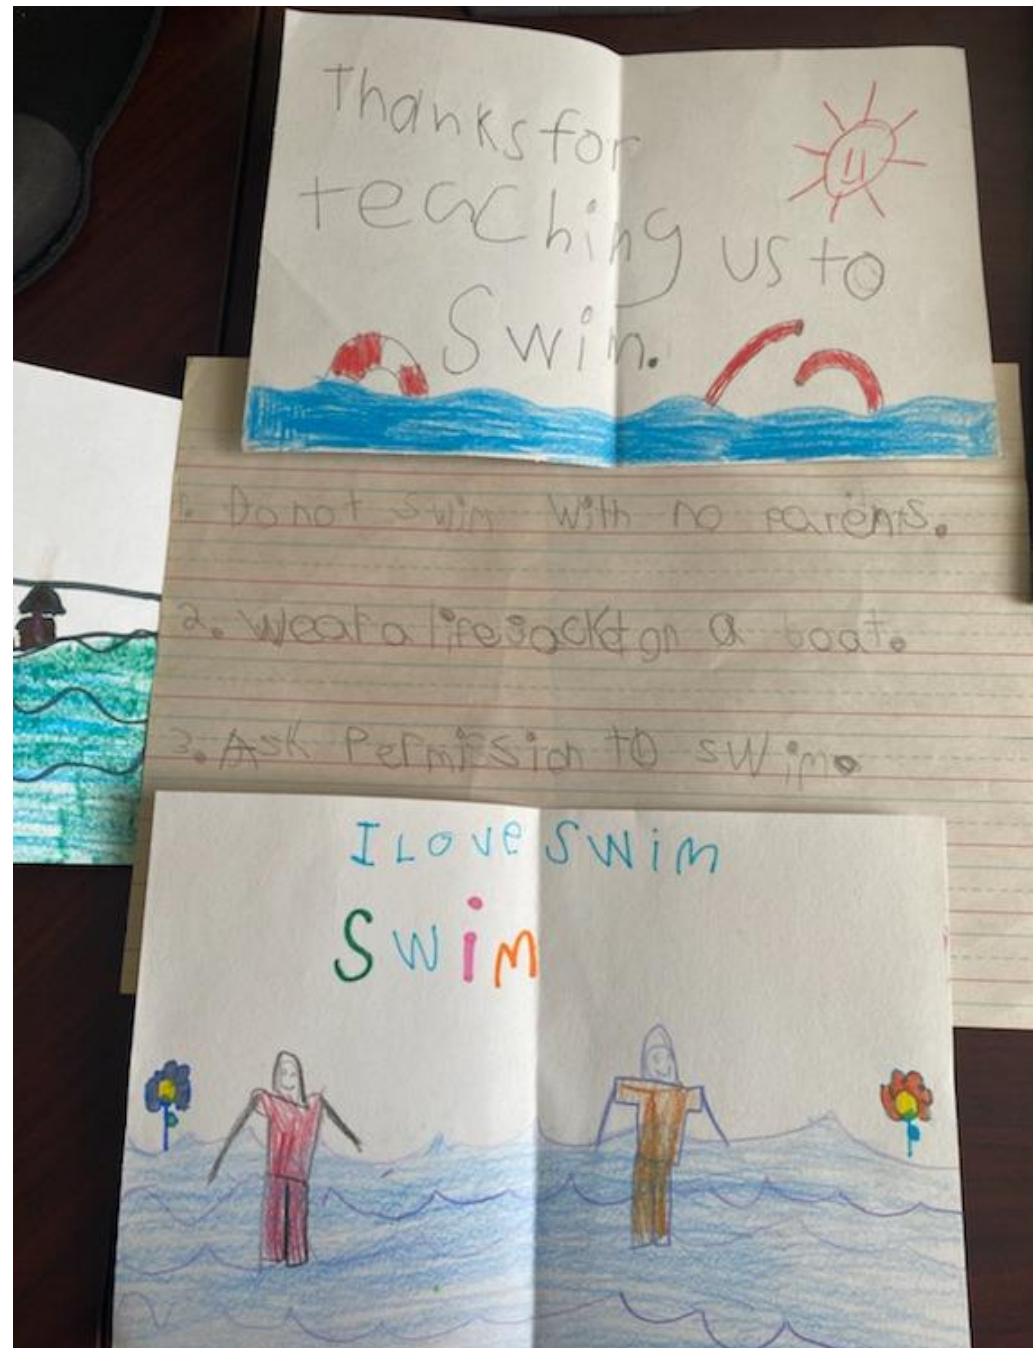 Thanks for
teaching us to
Swim.
1. Do not swim with no parents.
2. Wear a life jacket on a boat.
3. Ask Permision to swim.
I LOVE SWIM
Swim